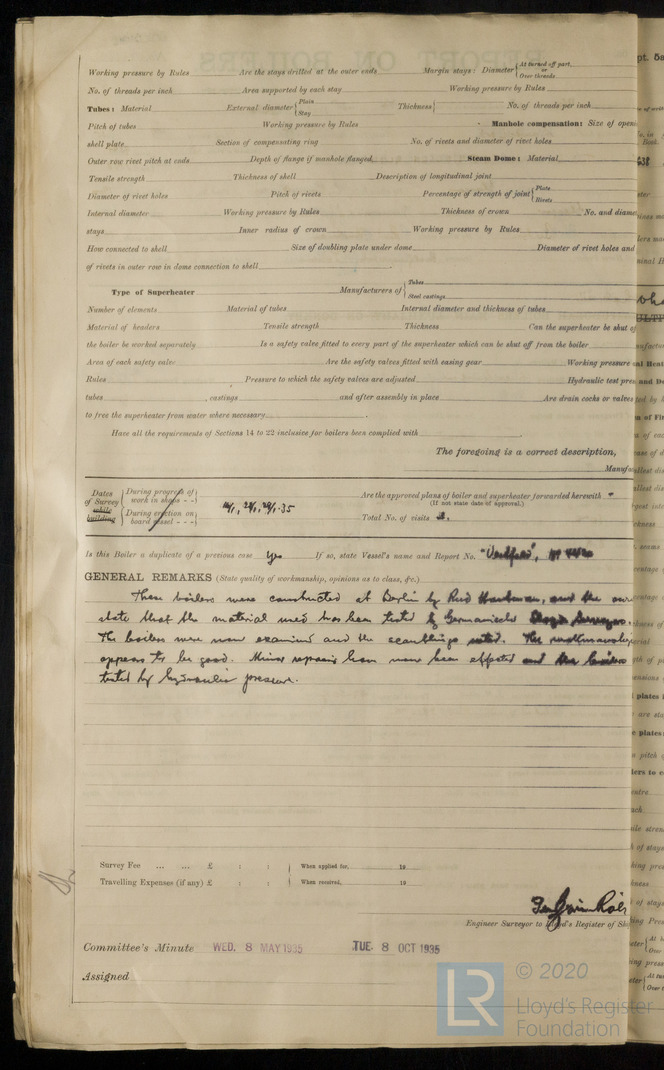 Working pressure by Rules Are the stays drilled at the outer ends Margin stays: Diameter { At turned off part, or Over threads
No. of threads per inch Area supported by each stay Working pressure by Rules
Tubes: Material External diameter { Plain Stay Thickness { No. of threads per inch
Pitch of tubes Working pressure by Rules Manhole compensation: Size of openi
shell plate Section of compensating ring No. of rivets and diameter of rivet holes
Outer row rivet pitch at ends Depth of flange if manhole flanged Steam Dome: Material
Tensile strength Thickness of shell Description of longitudinal joint
Diameter of rivet holes Pitch of rivets Percentage of strength of joint { Plate Rivets
Internal diameter Working pressure by Rules Thickness of crown No. and diame
stays Inner radius of crown Working pressure by Rules
How connected to shell Size of doubling plate under dome Diameter of rivet holes and
of rivets in outer row in dome connection to shell
Type of Superheater Manufacturers of { Tubes Steel castings
Number of elements Material of tubes Internal diameter and thickness of tubes
Material of headers Tensile strength Thickness Can the superheater be shut of
the boiler be worked separately Is a safety valve fitted to every part of the superheater which can be shut off from the boiler
Area of each safety valve Are the safety valves fitted with easing gear Working pressure
Rules Pressure to which the safety valves are adjusted Hydraulic test pres
tubes , castings and after assembly in place Are drain cocks or valves
to free the superheater from water where necessary
Have all the requirements of Sections 14 to 22 inclusive for boilers been complied with
The foregoing is a correct description,
Manufac
Dates of Survey while building { During progress of work in shops - - } { During erection on board vessel - - - } 35
Are the approved plans of boiler and superheater forwarded herewith
(If not state date of approval.)
Total No. of visits
Is this Boiler a duplicate of a previous case Yes If so, state Vessel's name and Report No.
GENERAL REMARKS (State quality of workmanship, opinions as to class, &c.)
These boilers were constructed at Berlin by and the
state that the material used has been tested by Germanischer Lloyd Surveyors.
The boilers were now examined and the scantlings noted. The workmanship
appears to be good. Minor repairs have now been effected and the boilers
tested by hydraulic pressure.
Survey Fee ... ... £ : : When applied for, 19
Travelling Expenses (if any) £ : : When received, 19
Engineer Surveyor to Lloyd's Register of Sh
Committee's Minute WED. 8 MAY 1935 TUE 8 OCT 1935
Assigned
LR © 2020
Lloyd's Register
Foundation